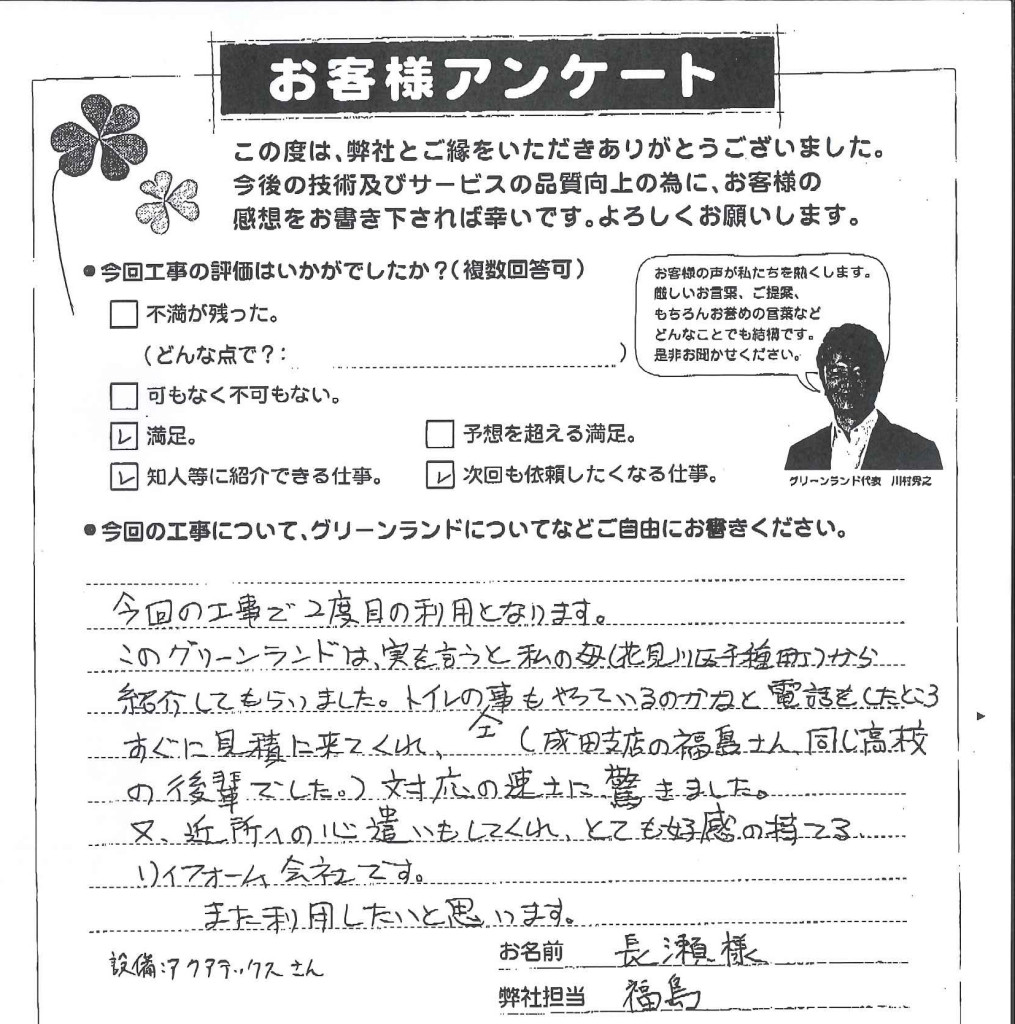 お客様アンケート
この度は、弊社とご縁をいただきありがとうございました。
今後の技術及びサービスの品質向上の為に、お客様の
感想をお書き下されば幸いです。よろしくお願いします。
●今回工事の評価はいかがでしたか？（複数回答可）
不満が残った。
（どんな点で？：　　　）
可もなく不可もない。
レ 満足。
予想を超える満足。
レ 知人等に紹介できる仕事。
レ 次回も依頼したくなる仕事。
お客様の声が私たちを熱くします。
厳しいお言葉、ご提案、
もちろんお誉めの言葉など
どんなことでも結構です。
是非お聞かせください。
グリーンランド代表　川村秀之
●今回の工事について、グリーンランドについてなどご自由にお書きください。
今回の工事で２度目の利用となります。
このグリーンランドは、実を言うと私の母（花見川区千種町）から
紹介してもらいました。トイレの事もやっているのかなと電話をしたところ
すぐに見積に来てくれ、（成田支店の福島さん、同じ高校
の後輩でした。）対応の速さに驚きました。
又、近所への心遣いもしてくれ、とても好感の持てる
リフォーム会社です。
また利用したいと思います。
設備：アクアテックスさん
お名前　長瀬様
弊社担当　福島